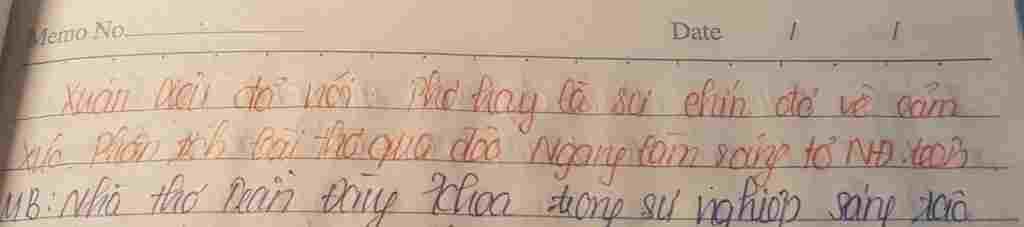 Memo No. Date / /
Xuân Diệu đã nói thơ hay là sự chín đỏ về cảm
xúc phân tích bài thơ qua đèo Ngang làm sáng tỏ NĐ trên
MB: Nhà thơ Trần Đăng Khoa trong sự nghiệp sáng tác